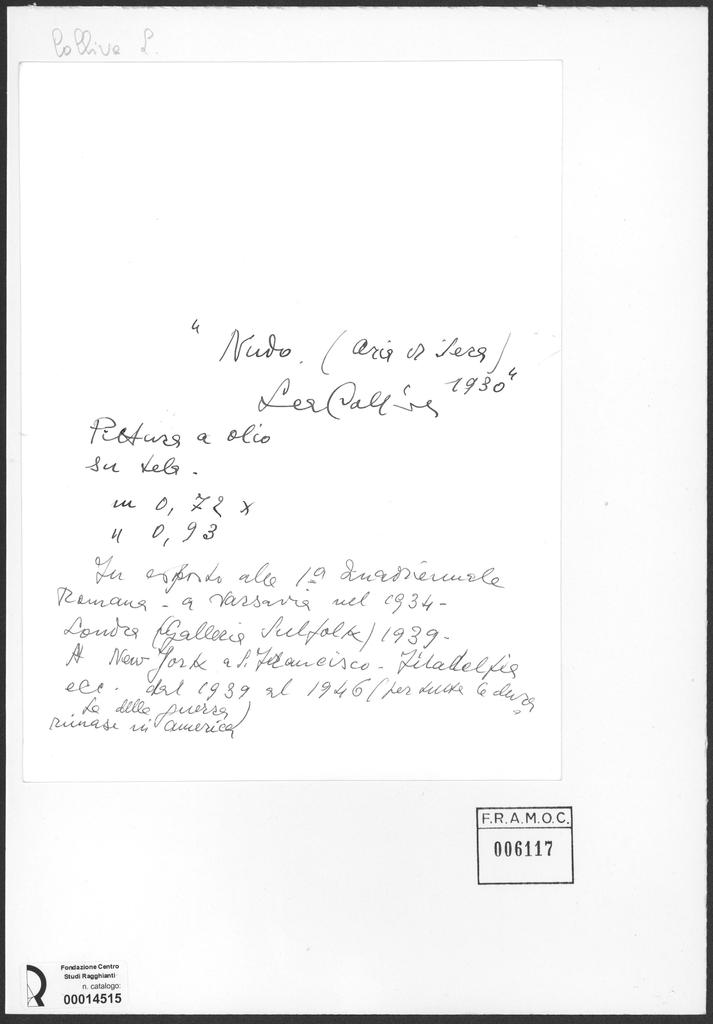 Colliva L.
" Nudo. (aria di sera)
Lea Colliva 1930"
Pittura a olio
su tela.
m 0,72 x
" 0,93
Fu esposto alla 1a Quadriennale
Romana - a Varsavia nel 1934-
Londra (Galleria Sulfolk) 1939-
A New York a S. Francisco - Filadelfia
ecc. dal 1939 al 1946 (per tutta la dura
ta della guerra)
rimase in america
F.R.A.M.O.C.
006117
Fondazione Centro
Studi Ragghianti
n. catalogo:
00014515